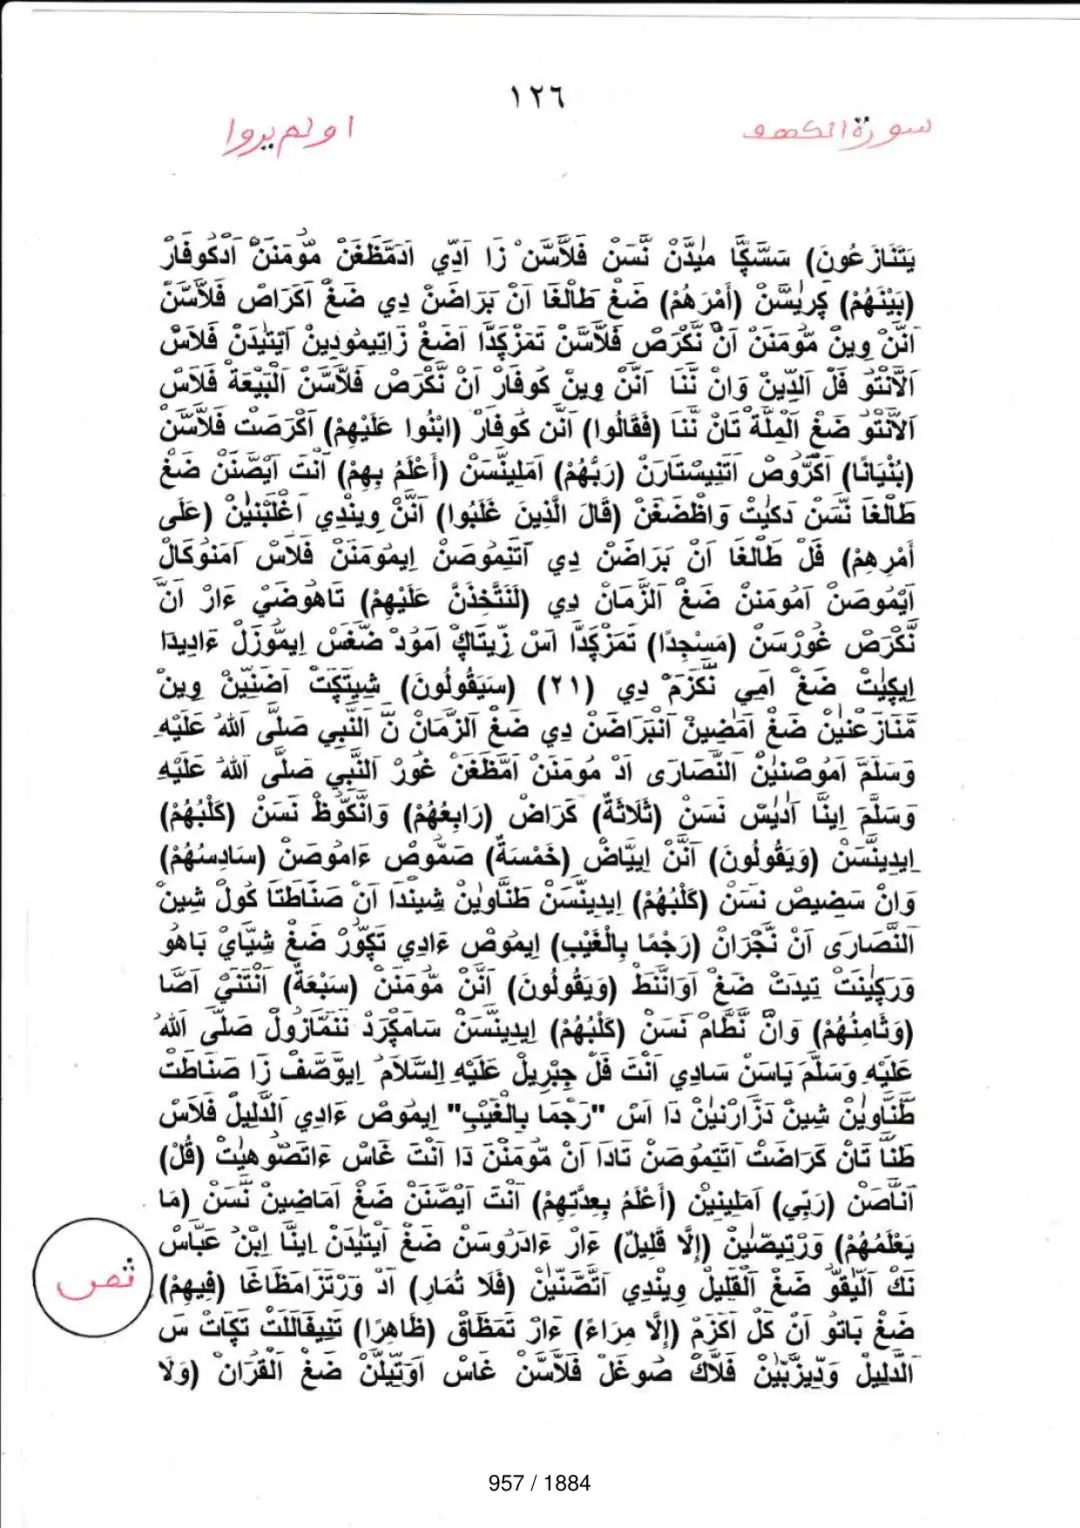 ١٢٦
سورة الكهف
اولم يروا
يَتَنَازَعُونَ) سَسَّكَّا مَيْدَّنْ نَّسَنْ فَلَّاسَّنْ زَا اَدِّي اَدَمَّظَغَنْ مُّومَنَنْ اَدْكُوفَارْ
(بَيْنَهُمْ) كَرِيْسَّنْ (أَمْرَهُمْ) ضَغْ طَالْغَا اَنْ بَرَاضَنْ دِي ضَغْ اَكَرَاضْ فَلَّاسَّنْ
اَنَّنْ وِينْ مُّومَنَنْ اَنْ نَّكْرَصْ فَلَّاسَّنْ تَمَزْكَدَّا اَضَغْ زَاتِيمُودِينْ اَيْتِيْدَنْ فَلَّاسْ
اَلْاَنْتُو فَلْ اَلدِّينْ وَانْ نَّنَا اَنَّنْ وِينْ كُوفَارْ اَنْ نَّكْرَصْ فَلَّاسَّنْ اَلْبَيْعَةْ فَلَّاسْ
اَلْاَنْتُو ضَغْ اَلْمِلَّةْ تَانْ نَّنَا (فَقَالُوا) اَنَّنْ كُوفَارْ (ابْنُوا عَلَيْهِمْ) اَكْرَصَتْ فَلَّاسَّنْ
(بُنْيَانًا) اَكَرُّوصْ اَتَنِيسْتَارَنْ (رَبُّهُمْ) اَمَلِينَّسَنْ (أَعْلَمُ بِهِمْ) اَنْتَ اَيْصَّنَنْ ضَغْ
طَالْغَا نَّسَنْ دَكِيْتْ وَاظْضَغَنْ (قَالَ الَّذِينَ غَلَبُوا) اَنَّنْ وِينْدِي اَغْلَبْنِيْنْ (عَلَى
أَمْرِهِمْ) فَلْ طَالْغَا اَنْ بَرَاضَنْ دِي اَتَّنِمُوصَنْ اِيمُومَنَنْ فَلَّاسْ اَمَنُوكَالْ
اَيْمُوصَنْ اَمُومَنَنْ ضَغْ اَلزَّمَانْ دِي (لَنَتَّخِذَنَّ عَلَيْهِمْ) تَاهُوضَيْ ءَارْ اَنْ
نَّكْرَصْ غُورْسَنْ (مَسْجِدًا) تَمَزْكَدَّا اَسْ زِّيتَاكْ اَمُودْ ضَغْسْ اِيمُّوزَلْ ءَادِيدَا
اِيكِيْتْ ضَغْ اَمِي نَّكْزَمْ دِي (٢١) (سَيَقُولُونَ) شِيتَكِتْ اَضَنِّينْ وِينْ
مَّنَازَعْنِيْنْ ضَغْ اَمَضِينْ اَنْبَرَاضَنْ دِي ضَغْ اَلزَّمَانْ نَّ اَلنَّبِي صَلَّى اللهُ عَلَيْهِ
وَسَلَّمَ اَمُوصْنِيْنْ اَلنَّصَارَى اَدْ مُومَنَنْ اَمَّظَغَنْ غُورْ اَلنَّبِي صَلَّى اللهُ عَلَيْهِ
وَسَلَّمَ اِينَّا اَدِيْسْ نَسَنْ (ثَلَاثَةٌ) كَرَاضْ (رَابِعُهُمْ) وَانْكُّوظْ نَسَنْ (كَلْبُهُمْ)
اِيدِينَّسَنْ (وَيَقُولُونَ) اَنَّنْ اِييَّاضْ (خَمْسَةٌ) صَمُّوصْ ءَامُوصَنْ (سَادِسُهُمْ)
وَانْ سَضِيصْ نَسَنْ (كَلْبُهُمْ) اِيدِينَّسَنْ طَنَّاوِيْنْ شِينْدَا اَنْ صَنَاطَتَا كُولْ شِينْ
اَلنَّصَارَى اَنْ نَّجْرَانْ (رَجْمًا بِالْغَيْبِ) اِيمُوصْ ءَادِي تَكُّورْ ضَغْ شِيَّايْ بَاهُو
وَرَكِيْنَتْ تِيدَتْ ضَغْ اَوَانَّنَطْ (وَيَقُولُونَ) اَنَّنْ مُّومَنَنْ (سَبْعَةٌ) اَنْتَنَيْ اَصَّا
(وَثَامِنُهُمْ) وَانْ نَّطَّامْ نَسَنْ (كَلْبُهُمْ) اِيدِينَّسَنْ سَامَكْرَدْ نَنَمَّازُولْ صَلَّى اللهُ
عَلَيْهِ وَسَلَّمَ يَاسَنْ سَادِي اَنْتَ فَلْ جِبْرِيلْ عَلَيْهِ السَّلَامُ اِيوَّصَفْ زَا صَنَاطَتْ
طَنَّاوِيْنْ شِينْ دَزَّارْنِيْنْ دَا اَسْ "رَجْمًا بِالْغَيْبِ" اِيمُوصْ ءَادِي اَلدَّلِيلْ فَلَّاسْ
طَنَّا تَانْ كَرَاضَتْ اَتَّتِمُوصَنْ تَادَا اَنْ مُّومَنَنْ دَا اَنْتَ غَاسْ ءَاتَصُّوهَيْتْ (قُلْ)
اَنَّاصَنْ (رَبِّي) اَمَلِينِيْنْ (أَعْلَمُ بِعِدَّتِهِمْ) اَنْتَ اَيْصَّنَنْ ضَغْ اَمَاضِينْ نَّسَنْ (مَا
يَعْلَمُهُمْ) وَرْتِيصَّيْنْ (إِلَّا قَلِيلٌ) ءَارْ ءَادَرُوسَنْ ضَغْ اَيْتِيْدَنْ اِينَّا اِبْنُ عَبَّاسْ
نَكْ اَلِّيقُّو ضَغْ اَلْقَلِيلْ وِينْدِي اَتَّصَّنِيْنْ (فَلَا تُمَارِ) اَدْ وَرْتَزَامَظَّاغَا (فِيهِمْ)
ضَغْ بَاتُو اَنْ كَلْ اَكْزَمْ (إِلَّا مِرَاءً) ءَارْ تَمَظَّاقْ (ظَاهِرًا) تَنِيفَالَلَتْ تَكَاتْ سَ
اَلدَّلِيلْ وَدِيزَّبَّيْنْ فَلَّاكْ صُوغَلْ فَلَّاسَّنْ غَاسْ اَوَتِّيلَنْ ضَغْ اَلْقُرَانْ (وَلَا
نص
957 / 1884